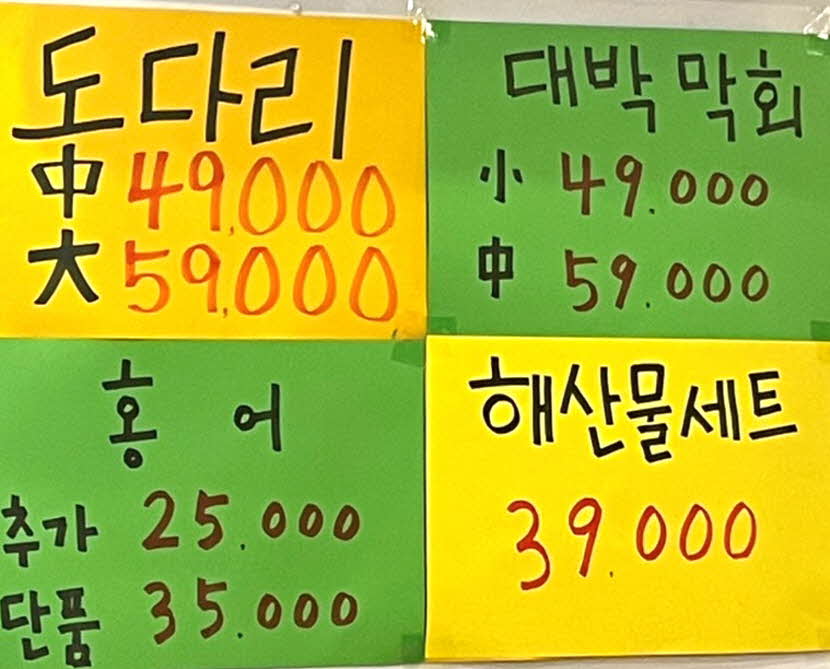 도다리
中 49,000
大 59,000
대박 막회
小 49.000
中 59.000
홍 어
추가 25.000
단품 35.000
해산물세트
39.000